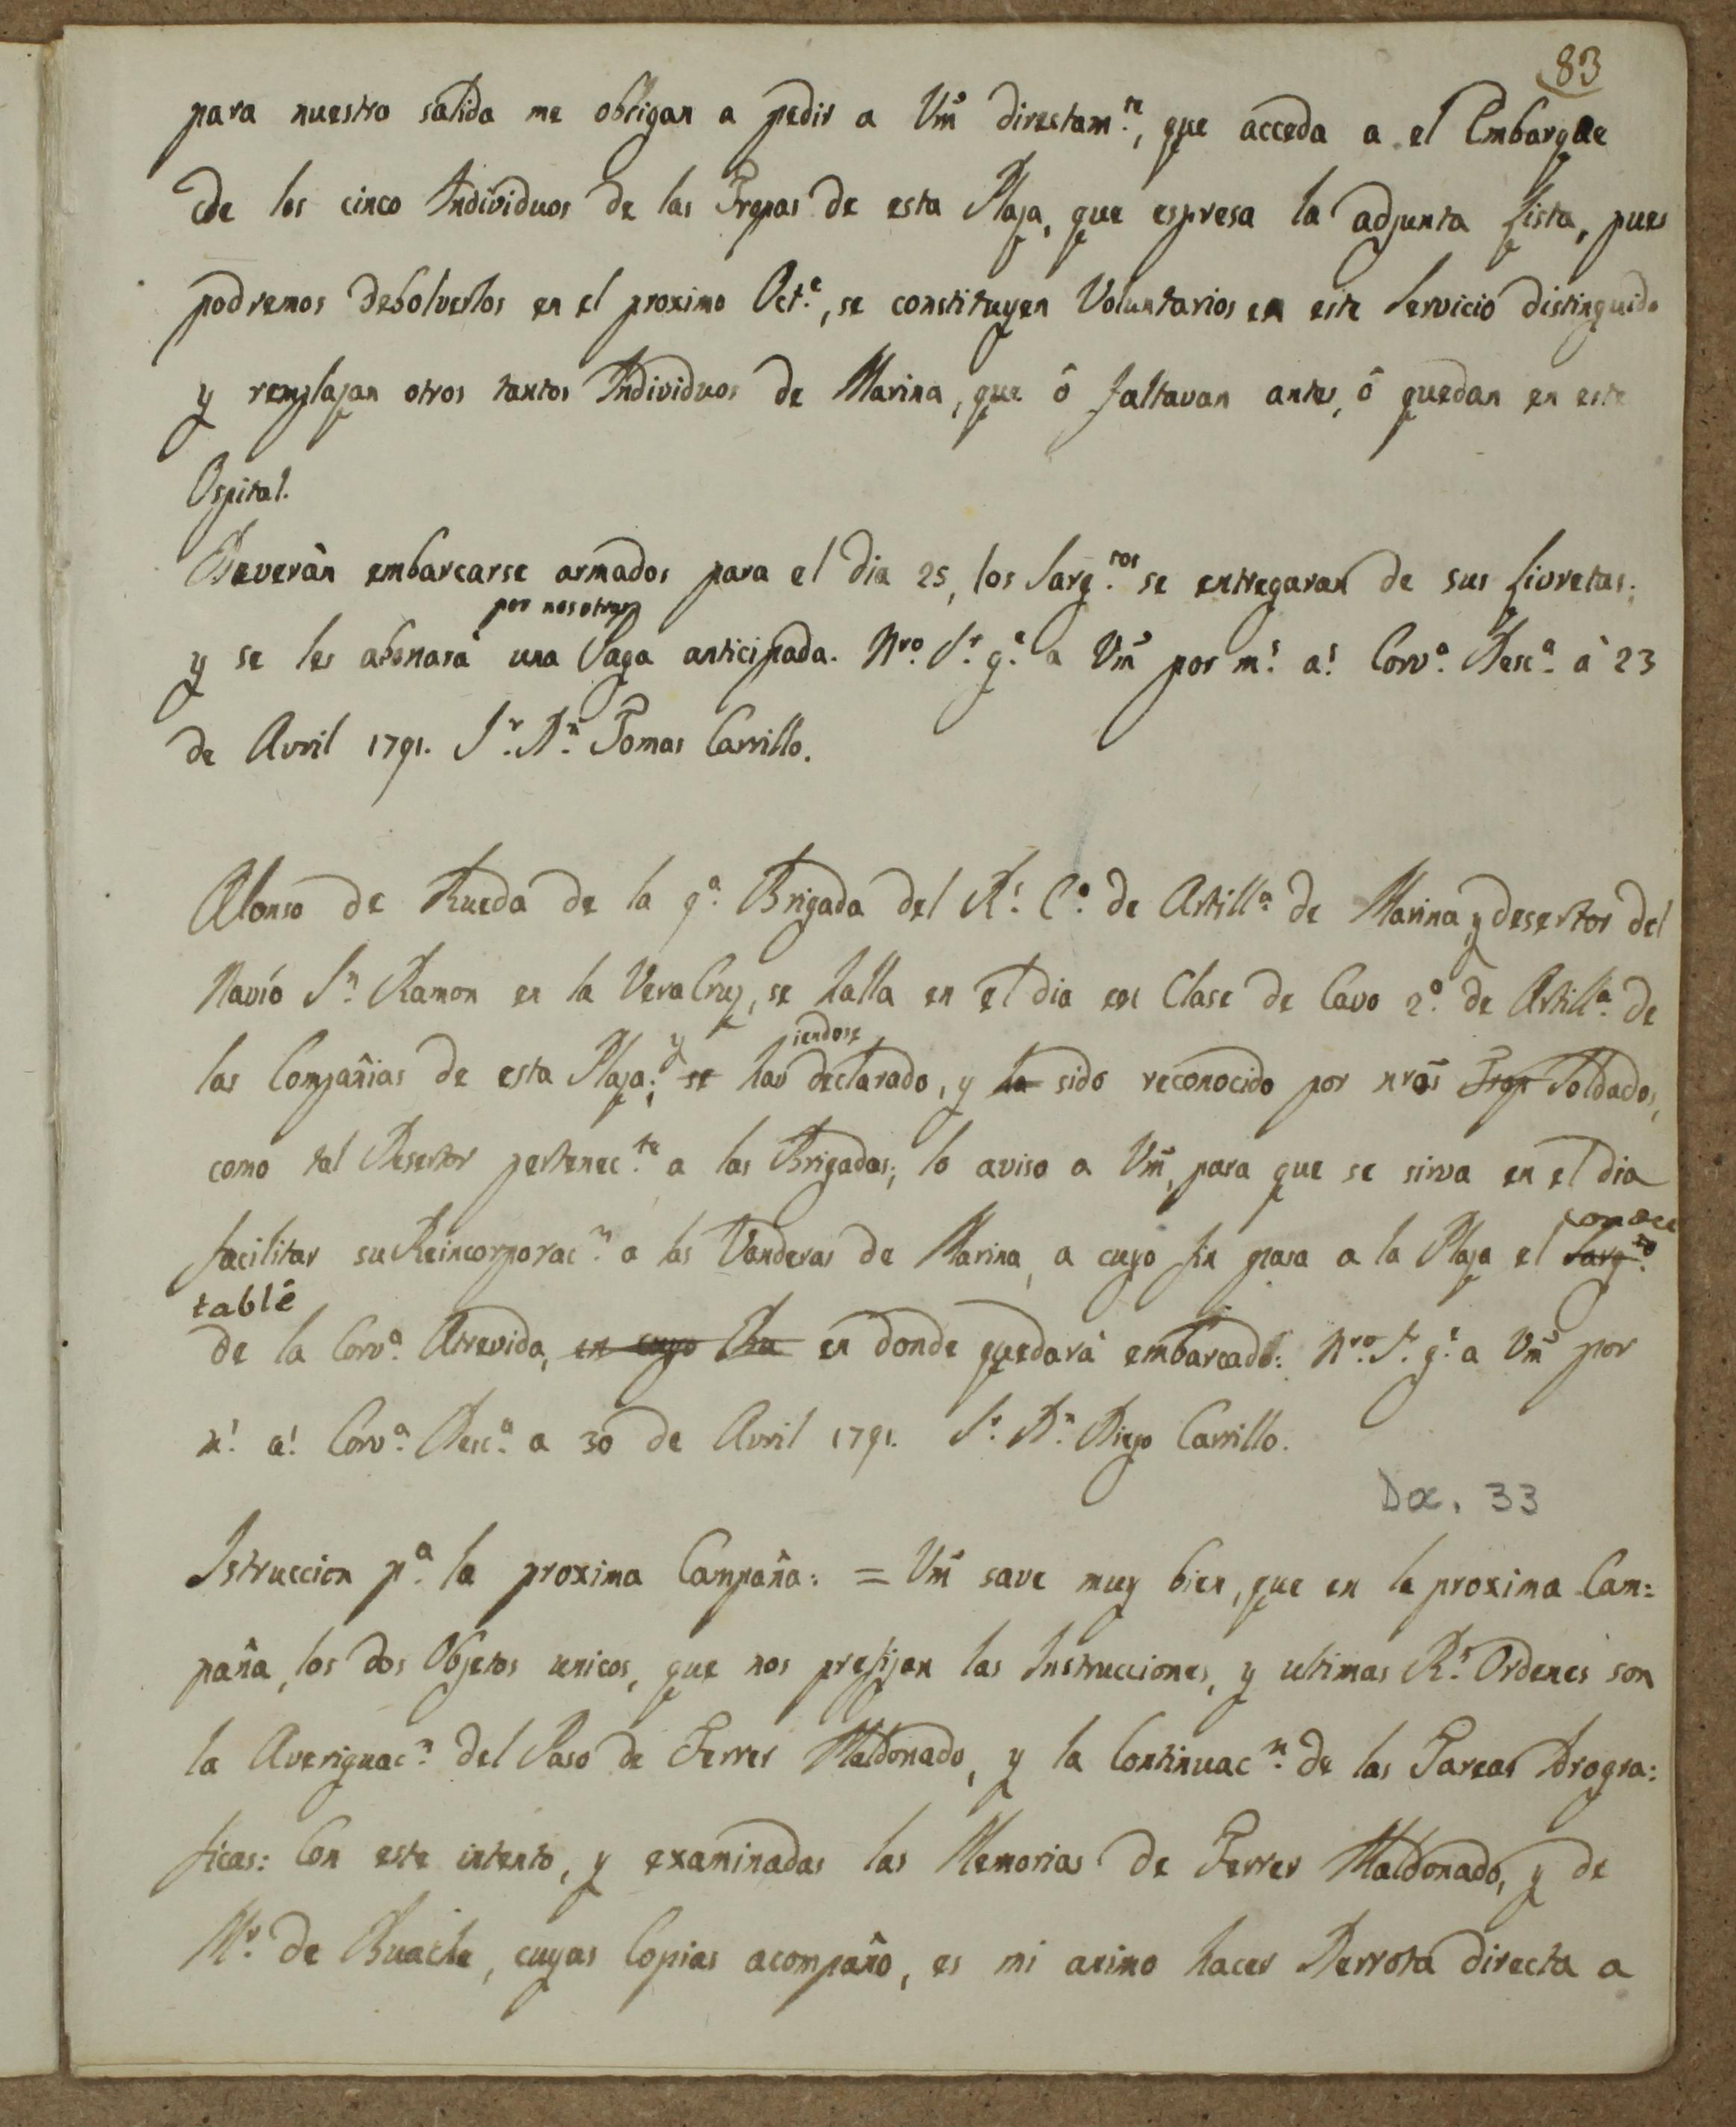 83
para nuestra salida me obligan a pedir a Vm̃ directam.te, que acceda a el Embarque
de los cinco Individuos de las Tropas de esta Plaza, que espresa la adjunta Lista, pues
podremos debolverlos en el proximo Oct.e, se constituyen Voluntarios en este Servicio distinguido
y remplazan otros tantos Individuos de Marina, que ô faltavan antes, ô quedan en este
Ospital.
Deveràn embarcarse armados para el dia 25, los Sarg.tos se entregaran de sus Livretas;
por nosotros
y se les abonarà una Paga anticipada. Nro. Sr. g.e a Vm̃ por m.s a.s Corv.a Desc.a à 23
de Avril 1791. Sr. Dn. Tomas Carrillo.
Alonso de Rueda de la 9.a Brigada del R.l C.o de Artill.a de Marina, y desertor del
Navío Sn. Ramon en la VeraCruz, se halla en el dia en Clase de Cavo 2.o de Artill.a de
y iendose
las Compañias de esta Plaza; se hav declarado, y ha sido reconocido por nrõs Trop Soldados,
como tal Desertor pertenec.te a las Brigadas; lo aviso a Vm̃, para que se sirva en el dia
conoce
facilitar su Reincorporac.n a las Vanderas de Marina, a cuyo fin pasa a la Plaza el Sarg.to
table
de la Corv.a Atrevida, en cuyo Cha en donde quedarà embarcado: Nro. Sr. g.e a Vm̃ por
m.s a.s Corv.a Desc.a a 30 de Avril 1791. Sr. Dn. Diego Carrillo.
Doc. 33
Istruccion p.a la proxima Campaña: = Vm̃ save muy bien, que en la proxima Cam:
paña, los dos Objetos unicos, que nos prefijan las Instrucciones, y ultimas R.s Ordenes son
la Averiguac.n del Paso de Ferrer Maldonado, y la Continuac.n de las Tareas Hrogra:
ficas: Con este intento, y examinadas las Memorias de Ferrer Maldonado, y de
Mr. de Buache, cuyas Copias acompaño, es mi animo hacer Derrota directa a